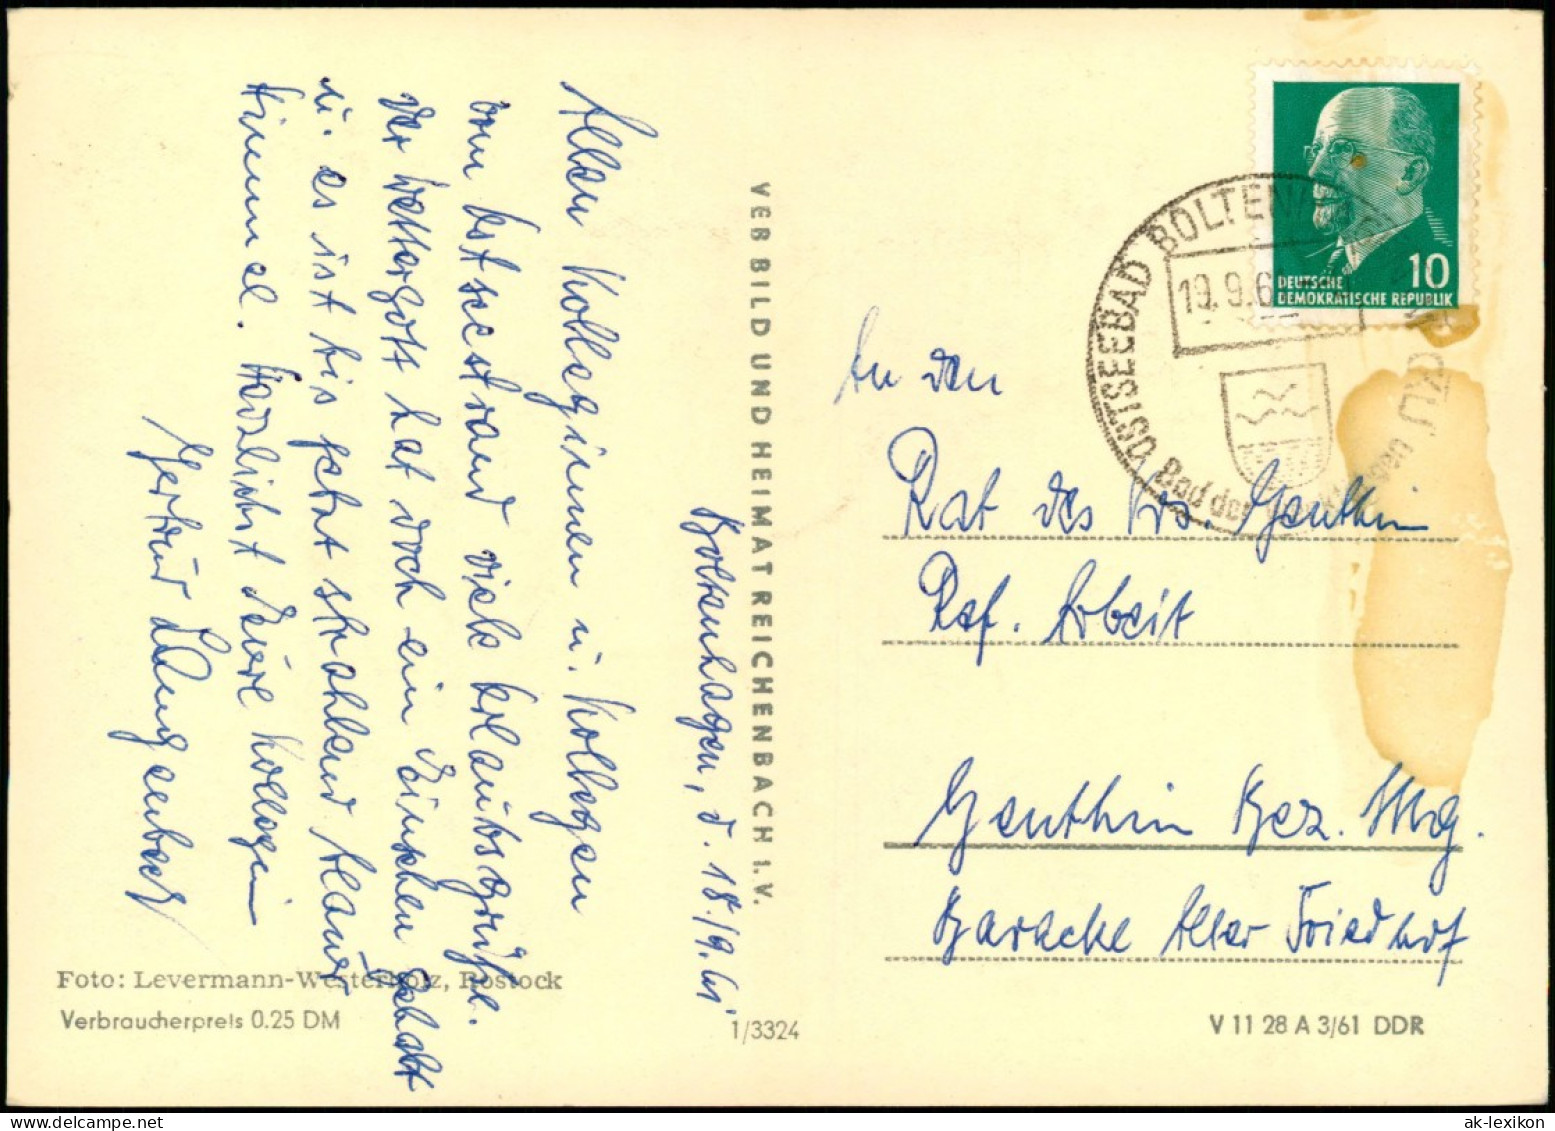 Boltenhagen, d. 18./9.61
Allen Kolleginnen u. Kollegen
vom Ostseestrand viele Urlaubsgrüße.
Der Wettergott hat doch ein Einsehen gehabt
u. es ist bis jetzt strahlend blauer
Himmel. Herzlichst Eure Kollegin
Gertrud Langenbeck
VEB BILD UND HEIMAT REICHENBACH I.V.
DEUTSCHE
DEMOKRATISCHE REPUBLIK
10
OSTSEEBAD BOLTENHAGEN
19.9.6
Bad der
An den
Rat des Krs. Genthin
Ref. Arbeit
Genthin Bez. Mbg.
Baracke Alter Friedhof
Foto: Levermann-Westerholz, Rostock
Verbraucherpreis 0.25 DM
1/3324
V 11 28 A 3/61 DDR
ak-lexikon